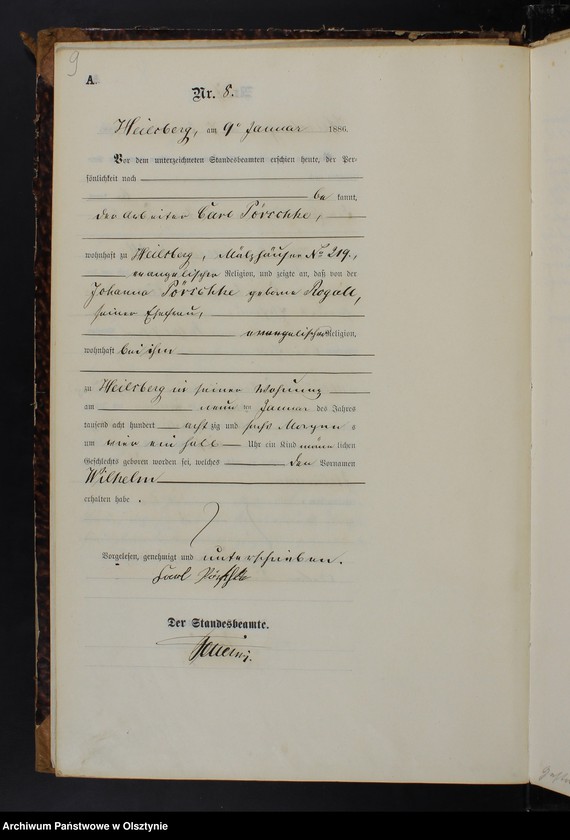 9
A.
Nr. 8.
Heilsberg, am 9ten Januar 1886.
Vor dem unterzeichneten Standesbeamten erschien heute, der Per-
sönlichkeit nach
be kannt,
der Arbeiter Carl Pörschke,
wohnhaft zu Heilsberg, Mälzhäuser No 219,
evangelischer Religion, und zeigte an, daß von der
Johanna Pörschke geborne Rogall,
seiner Ehefrau,
evangelischer Religion,
wohnhaft bei ihm
zu Heilsberg in seiner Wohnung
am neun ten Januar des Jahres
tausend acht hundert acht zig und sechs Morgens
um vier ein halb Uhr ein Kind männ lichen
Geschlechts geboren worden sei, welches den Vornamen
Wilhelm
erhalten habe.
Vorgelesen, genehmigt und unterschrieben.
Carl Pörschke
Der Standesbeamte.
Archiwum Państwowe w Olsztynie